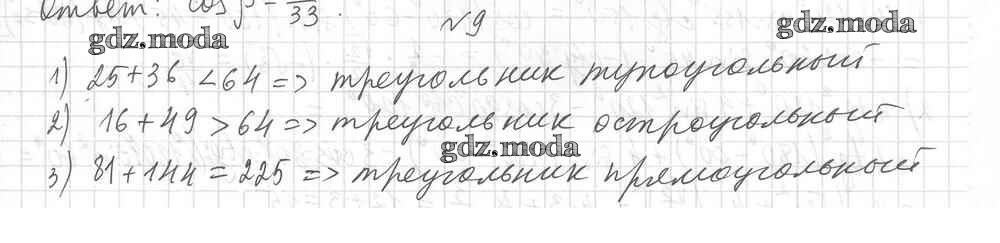 Ответ: cos β = /33.
№9
gdz.moda
gdz.moda
1) 25+36 <64 => треугольник тупоугольный
2) 16+49 >64 => треугольник остроугольный
gdz.moda
3) 81+144 = 225 => треугольник прямоугольный